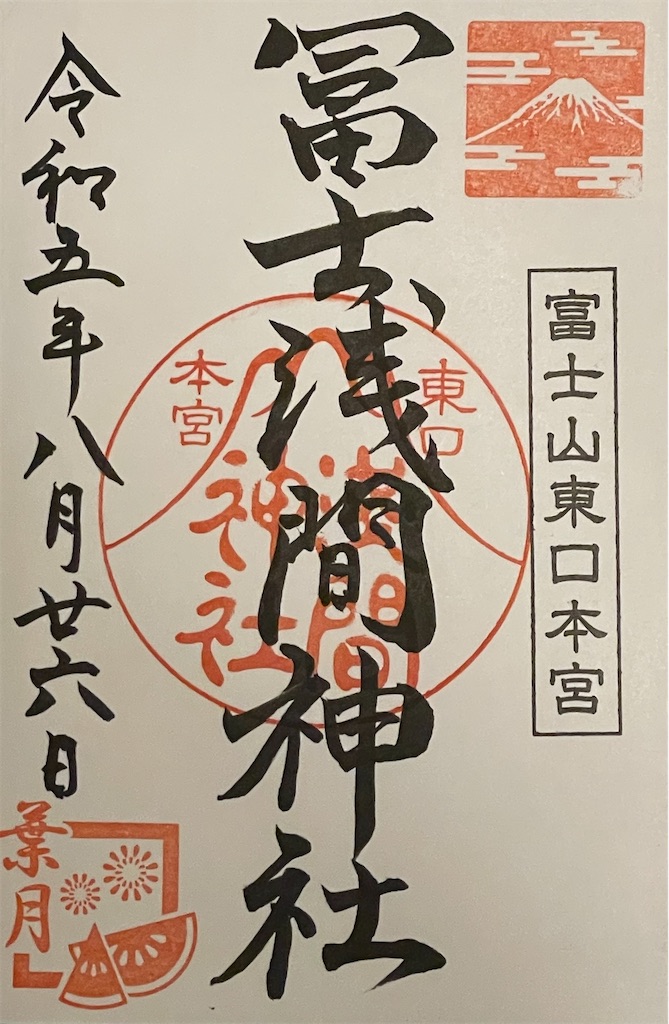 富士山東口本宮
冨士浅間神社
東口
本宮
浅間
神社
令和五年八月廿六日
葉月